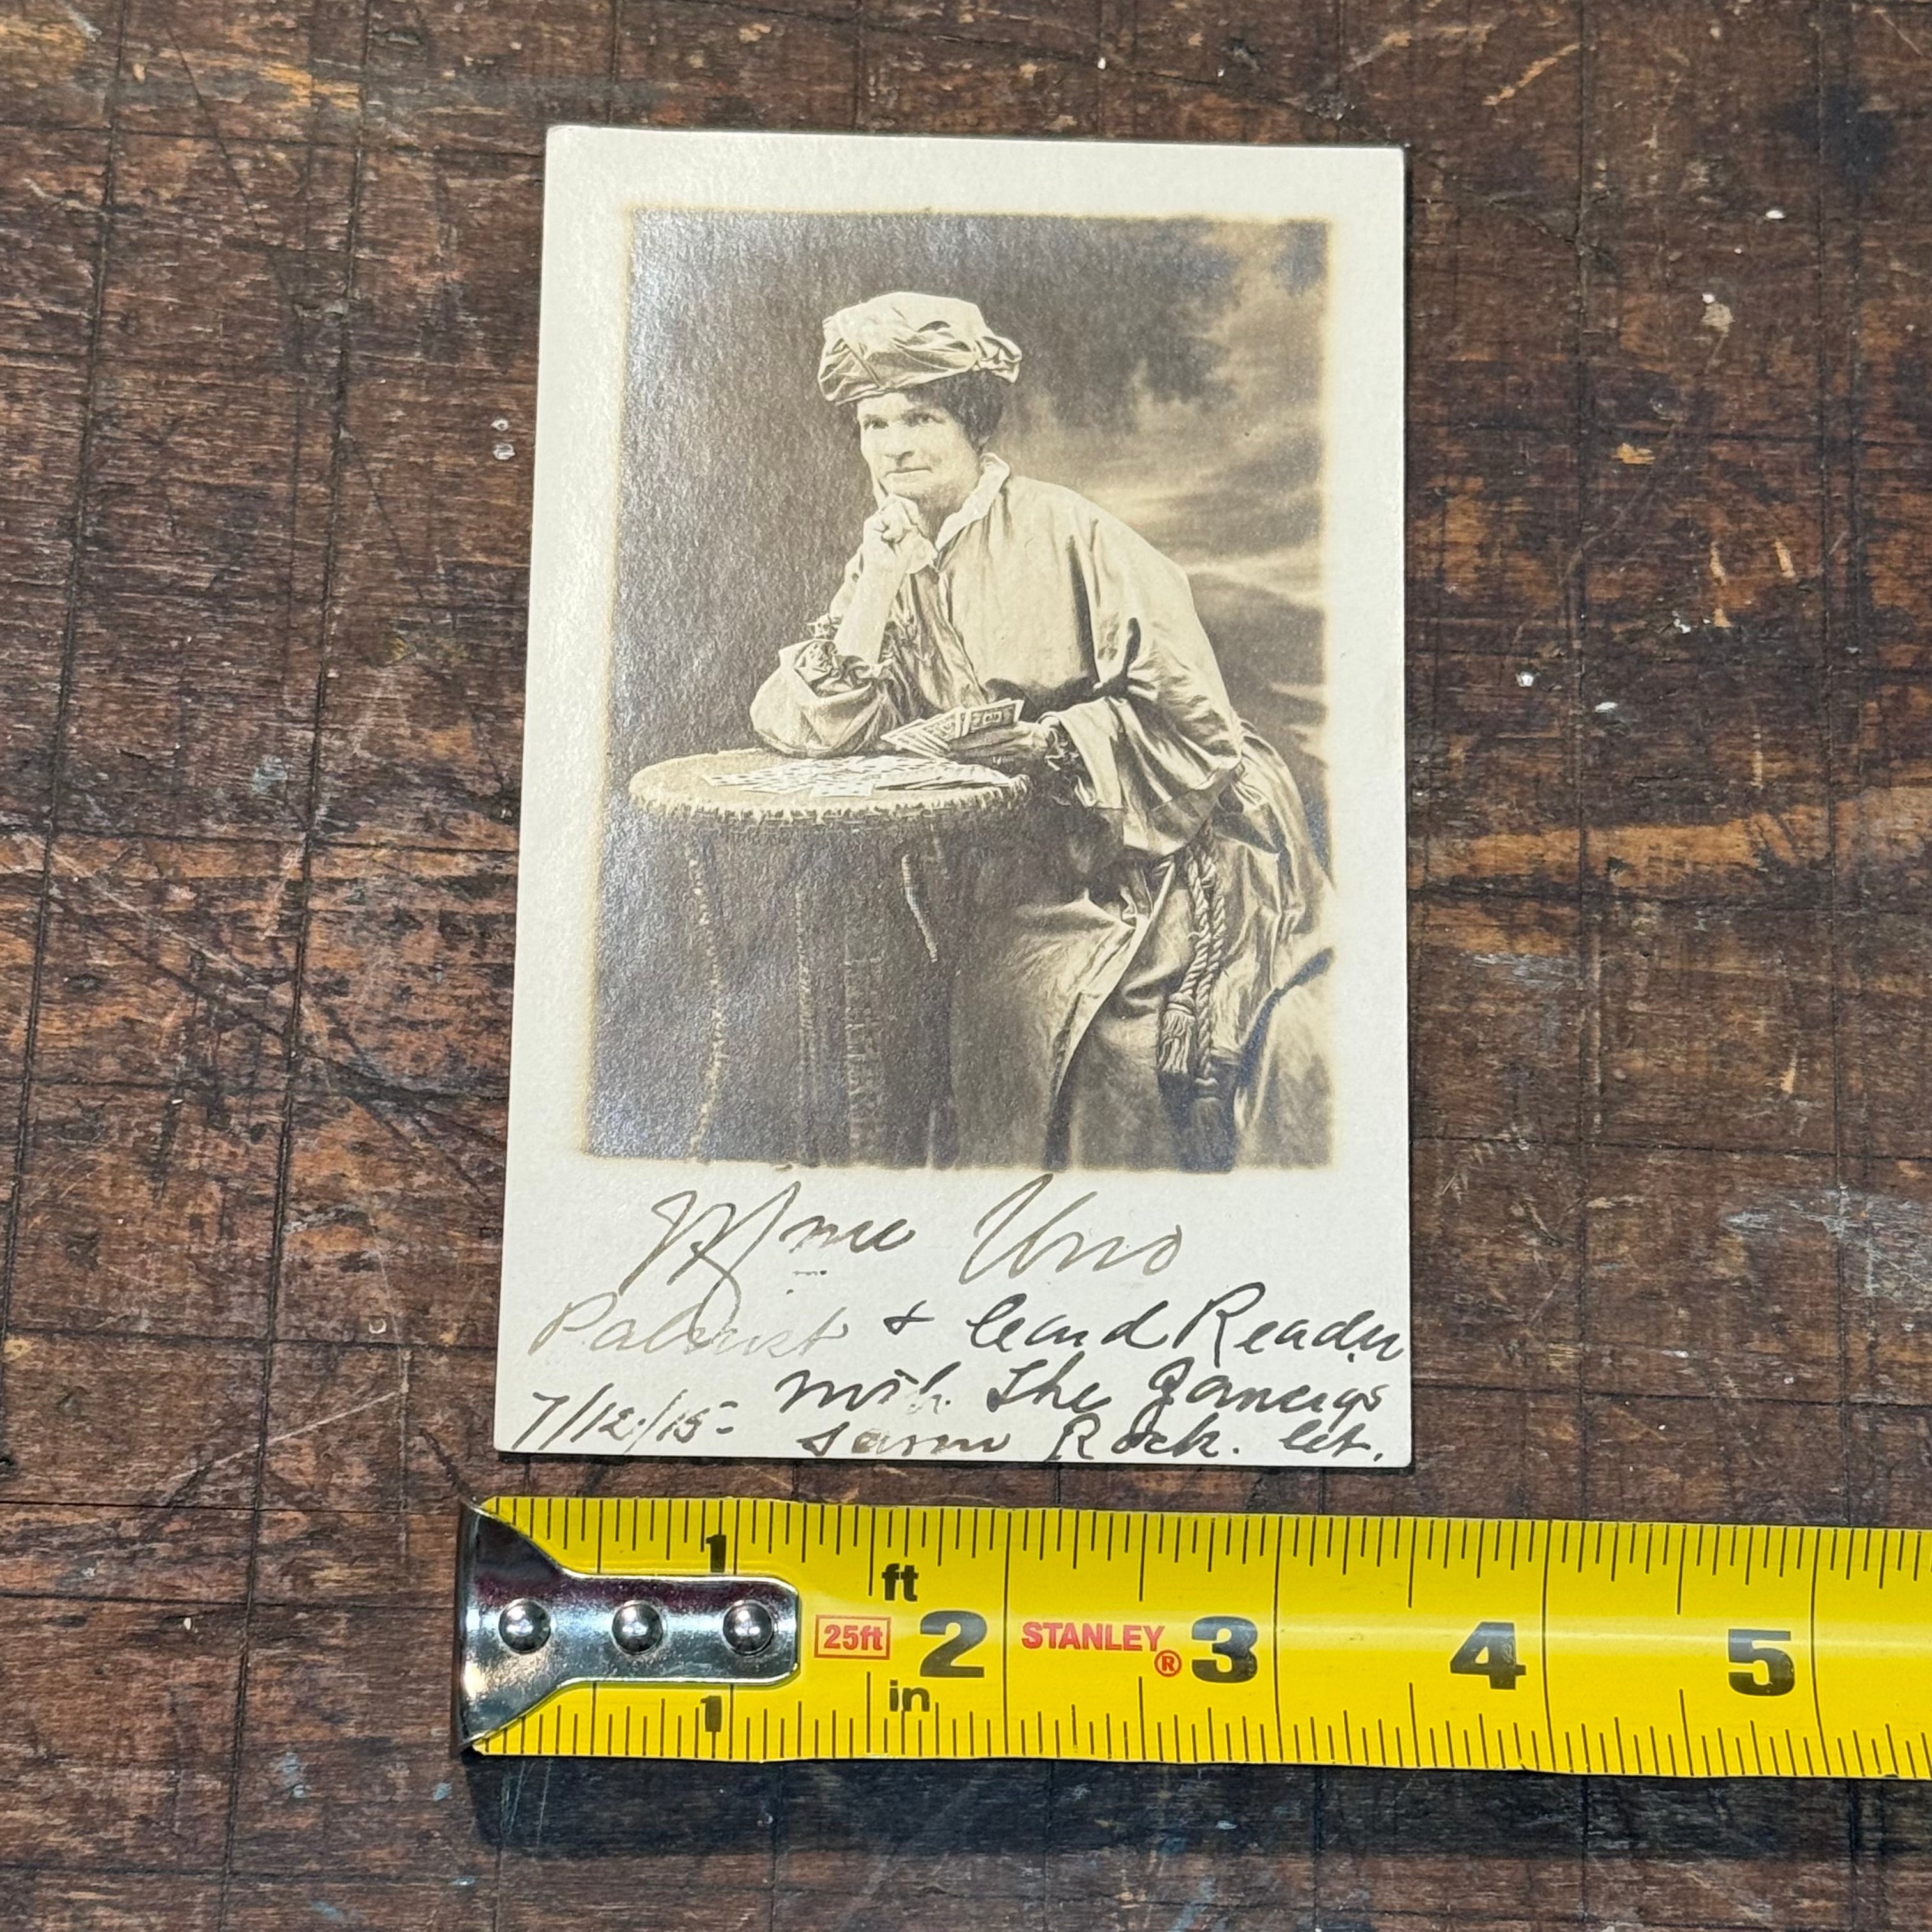 Mme Uno
Palmist + Card Reader
with The Zancigs
7/12/15- Savin Rock. Ct.
1 ft
25ft 2 STANLEY® 3 4 5
1 in